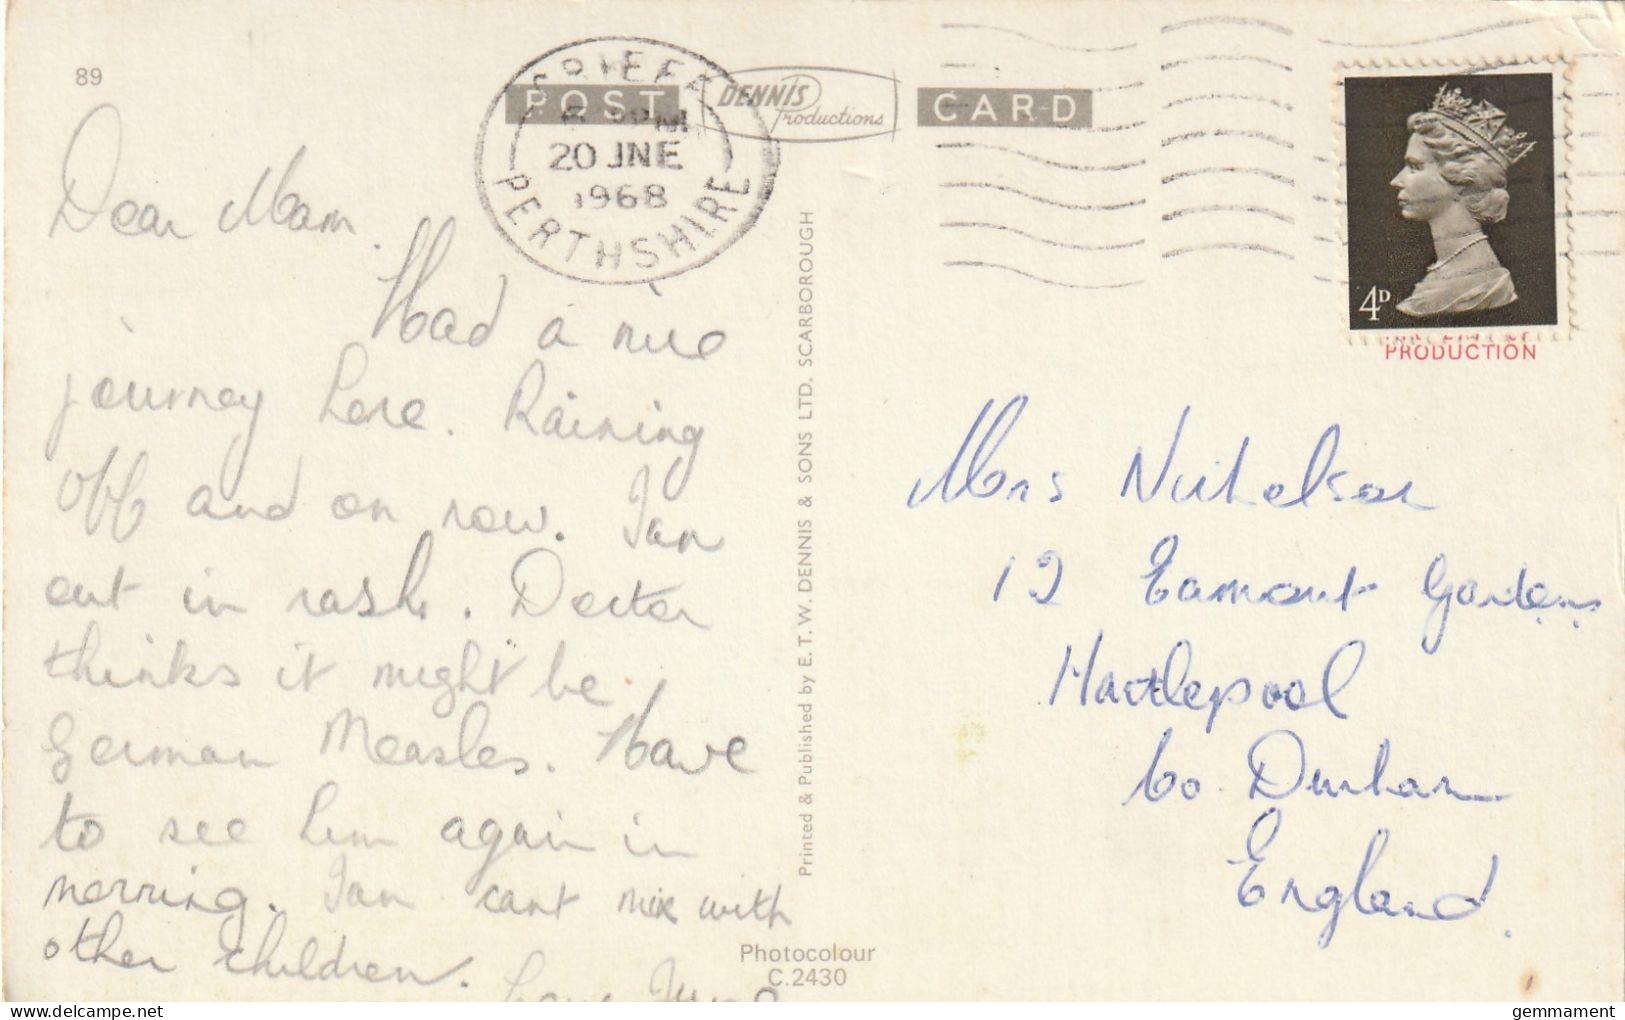 89
POST
DENNIS
Productions
CARD
CRIEFF
PM
20 JNE
1968
PERTHSHIRE
4D
PRODUCTION
Dear Mam.
Had a nice
journey here. Raining
off and on now. Ian
out in rash. Doctor
thinks it might be
German Measles. Have
to see him again in
morning. Ian cant mix with
other children.
Love June
Printed & Published by E. T. W. DENNIS & SONS LTD. SCARBOROUGH
Mrs Nicholson
12 Eamont Gardens
Hartlepool
Co. Durham
England.
Photocolour
C.2430
gemmament